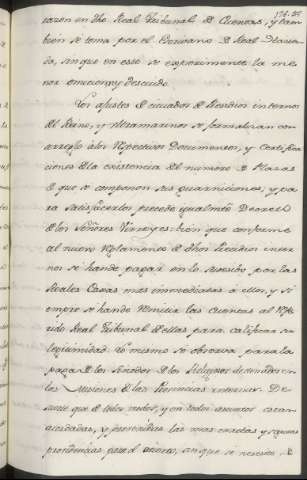 razon en dho Real Tribunal de Cuentas, y tam
bien se toma por el Escribano de Real Hacien
da, sin que en esto se experimente la me
nor omicion y descuido.
Los ajustes de situados de Presidios internos
del Reino, y Ultramarinos se formalizan con
arreglo á los respectivos Documentos, y Certifica
ciones de la existencia del numero de Plazas
de que se componen sus guarniciones, y pa
ra satisfacerlos precede igualmte Decreto
de los Señores Virreyes: bien que conforme
al nuevo Reglamento de dhos Presidios inter
nos se han de pagar en lo susesivo por las
Reales Caxas mas immediatas á ellos, y si
empre se han de remitir las Cuentas al refe
rido Real Tribunal de ellas para calificar su
legitimidad. Lo mismo se observa para la
paga de los Sinodos de los Religiosos destinados en
las Misiones de las Provincias internas. De
suerte que de todos modos, y en todos asuntos estan
las mas exactas y
providencias para el acierto, sin que se necesite